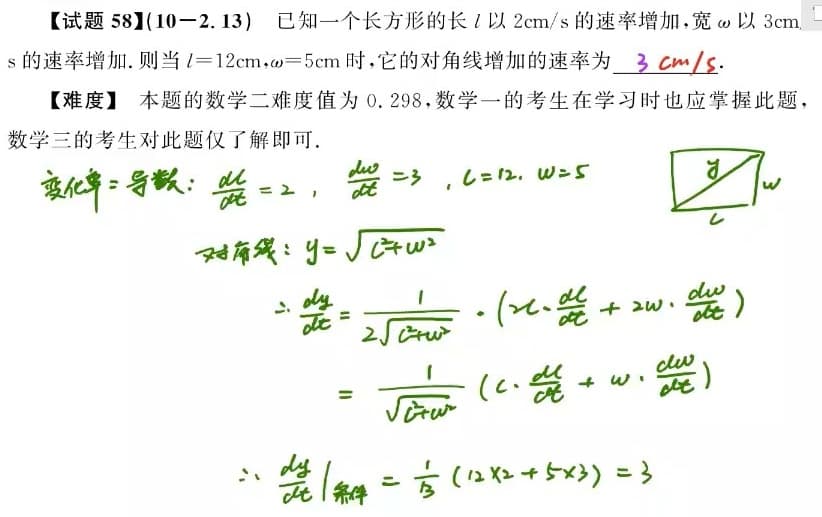 【试题 58】(10－2.13) 已知一个长方形的长 l 以 2cm/s 的速率增加,宽 ω 以 3cm/
s 的速率增加.则当 l=12cm,ω=5cm 时,它的对角线增加的速率为 3 cm/s.
【难度】 本题的数学二难度值为 0.298,数学一的考生在学习时也应掌握此题,
数学三的考生对此题仅了解即可.
变化率=导数: dl/dt = 2 , dω/dt = 3 , l=12. w=5
y
w
l
对角线: y= √(l²+w²)
∴ dy/dt = 1/(2√(l²+w²)) · (2l·dl/dt + 2w·dw/dt)
= 1/√(l²+w²) (l·dl/dt + w·dw/dt)
∴ dy/dt |条件 = 1/13 (12×2+5×3) = 3